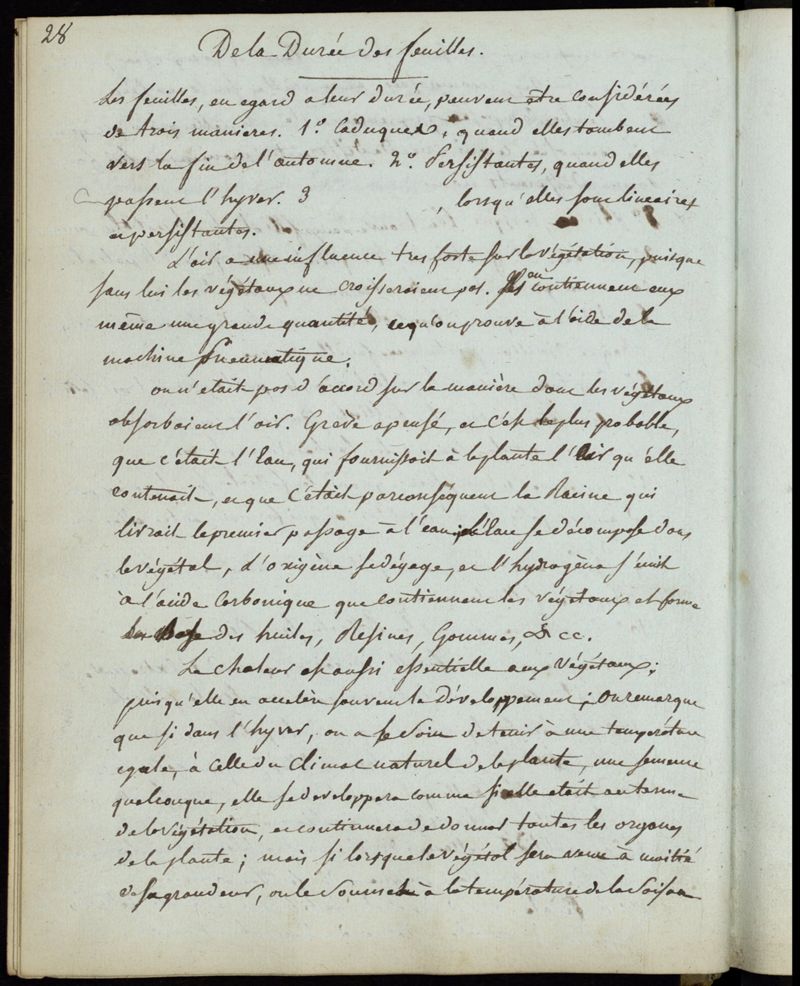 28
De la Durée des feuilles.
Les feuilles, eu egard a leur durée, peuvent être considérées
de trois manieres. 1.o Caduques, quand elles tombent
vers la fin de l'automne. 2.o Persistantes, quand elles
passent l'hyver. 3 , lorsqu'elles sont lineaires
et persistantes.
L'air a une influence tres forte sur la végétation, puisque
sans lui les végétaux ne croisseroient pas. Ils en contiennent eux
même une grande quantité, ce qu'on prouve à l'aide de la
machine Pneumatique.
on n'etait pas d'accord sur la manière dont les végétaux
absorboient l'air. Grew a pensé, et c'est le plus probable,
que c'était l'Eau, qui fournissoit à la plante l'air qu'elle
contenait, et que c'était par conséquent la Racine qui
livrait le premier passage à l'eau; l'Eau se décompose dans
le végétal, l'oxigène se dégage, et l'hydrogène s'unit
à l'acide Carbonique que contiennent les végétaux et forme
la Base des huiles, Resines, Gommes, &cc.
La chaleur est aussi essentielle aux végétaux;
puisqu'elle en accelère souvent le développement; on remarque
que si dans l'hyver, on a le soin de tenir à une température
egale, à celle du Climat naturel de la plante, une semence
quelconque, elle se developpera comme si elle était au terme
de la végétation, et continuera de donner toutes les organes
de la plante; mais si lorsque le végétal sera venu à moitié
de sa grandeur, on le soumet à la température de la saison